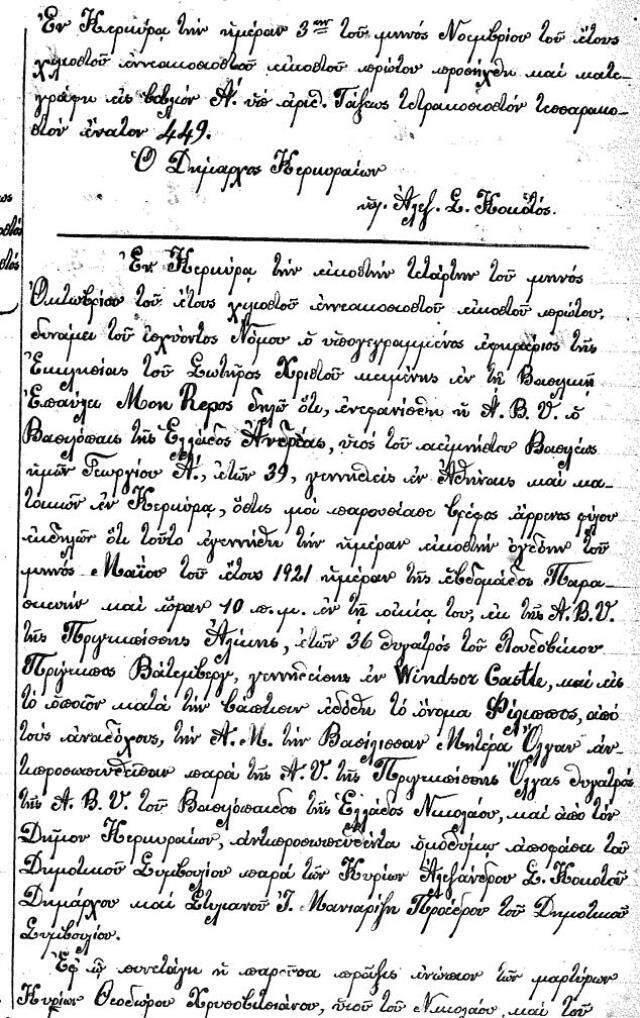 Ἐν Κερκύρᾳ τὴν ἡμέραν 3ην τοῦ μηνός Νοεμβρίου τοῦ ἔτους
χιλιοστοῦ ἐννεακοσιοστοῦ εἰκοστοῦ πρώτου προσήχθη καὶ κατε-
γράφη εἰς βιβλίον Α΄. ὑπ' ἀριθ. Τάξεως τετρακοσιοστόν τεσσαρακο-
στόν ἔνατον 449.
Ὁ Δήμαρχος Κερκυραίων
ὑπ. Ἀλεξ. Σ. Κοκοτός.
Ἐν Κερκύρᾳ τὴν εἰκοστήν τετάρτην τοῦ μηνός
Ὀκτωβρίου τοῦ ἔτους χιλιοστοῦ ἐννεακοσιοστοῦ εἰκοστοῦ πρώτου,
δυνάμει τοῦ ἰσχύοντος Νόμου ὁ ὑπογεγραμμένος ἐφημέριος τῆς
Ἐκκλησίας τοῦ Σωτῆρος Χριστοῦ κειμένης ἐν τῇ Βασιλικῇ
Ἐπαύλει Mon Repos δηλῶ ὅτι, ἐνεφανίσθη ἡ Α. Β. Υ. ὁ
Βασιλόπαις τῆς Ἑλλάδος Ἀνδρέας, υἱός τοῦ ἀειμνήστου Βασιλέως
ἡμῶν Γεωργίου Α΄., ἐτῶν 39, γεννηθείς ἐν Ἀθήναις καὶ κα-
τοικῶν ἐν Κερκύρᾳ, ὅστις μοὶ παρουσίασε βρέφος ἄρρενος φύλου
ἐκδηλῶν ὅτι τοῦτο ἐγεννήθη τὴν ἡμέραν εἰκοστήν ὀγδόην τοῦ
μηνός Μαΐου τοῦ ἔτους 1921 ἡμέραν τῆς ἑβδομάδος Παρα-
σκευήν καὶ ὥραν 10 π. μ. ἐν τῇ οἰκίᾳ του, ἐκ τῆς Α. Β. Υ.
τῆς Πριγκιπίσσης Ἀλίκης, ἐτῶν 36 θυγατρός τοῦ Λουδοβίκου
Πρίγκιπος Βάτεμβεργ, γεννηθείσης ἐν Windsor Castle, καὶ εἰς
τὸ ὁποῖον κατά τὴν βάπτισιν ἐδόθη τὸ ὄνομα Φίλιππος, ἀπό
τοὺς ἀναδόχους, τὴν Α. Μ. τὴν Βασίλισσαν Μητέρα Ὄλγαν ἀν-
τιπροσωπευθεῖσαν παρά τῆς Α. Υ. τῆς Πριγκιπίσσης Ὄλγας θυγατρός
τῆς Α. Β. Υ. τοῦ Βασιλόπαιδος τῆς Ἑλλάδος Νικολάου, καὶ ἀπό τὸν
Δῆμον Κερκυραίων, ἀντιπροσωπευθέντα ὁμοθύμῳ ἀποφάσει τοῦ
Δημοτικοῦ Συμβουλίου παρά τῶν Κυρίων Ἀλεξάνδρου Σ. Κοκοτοῦ
Δημάρχου καὶ Στυλιανοῦ Ι. Μανιαρίζη Προέδρου τοῦ Δημοτικοῦ
Συμβουλίου.
Ἐφ' ᾧ συνετάγη ἡ παροῦσα πρᾶξις ἐνώπιον τῶν μαρτύρων
Κυρίων Θεοδώρου Χρυσοβιτσιάνου, υἱοῦ τοῦ Νικολάου, καὶ τοῦ